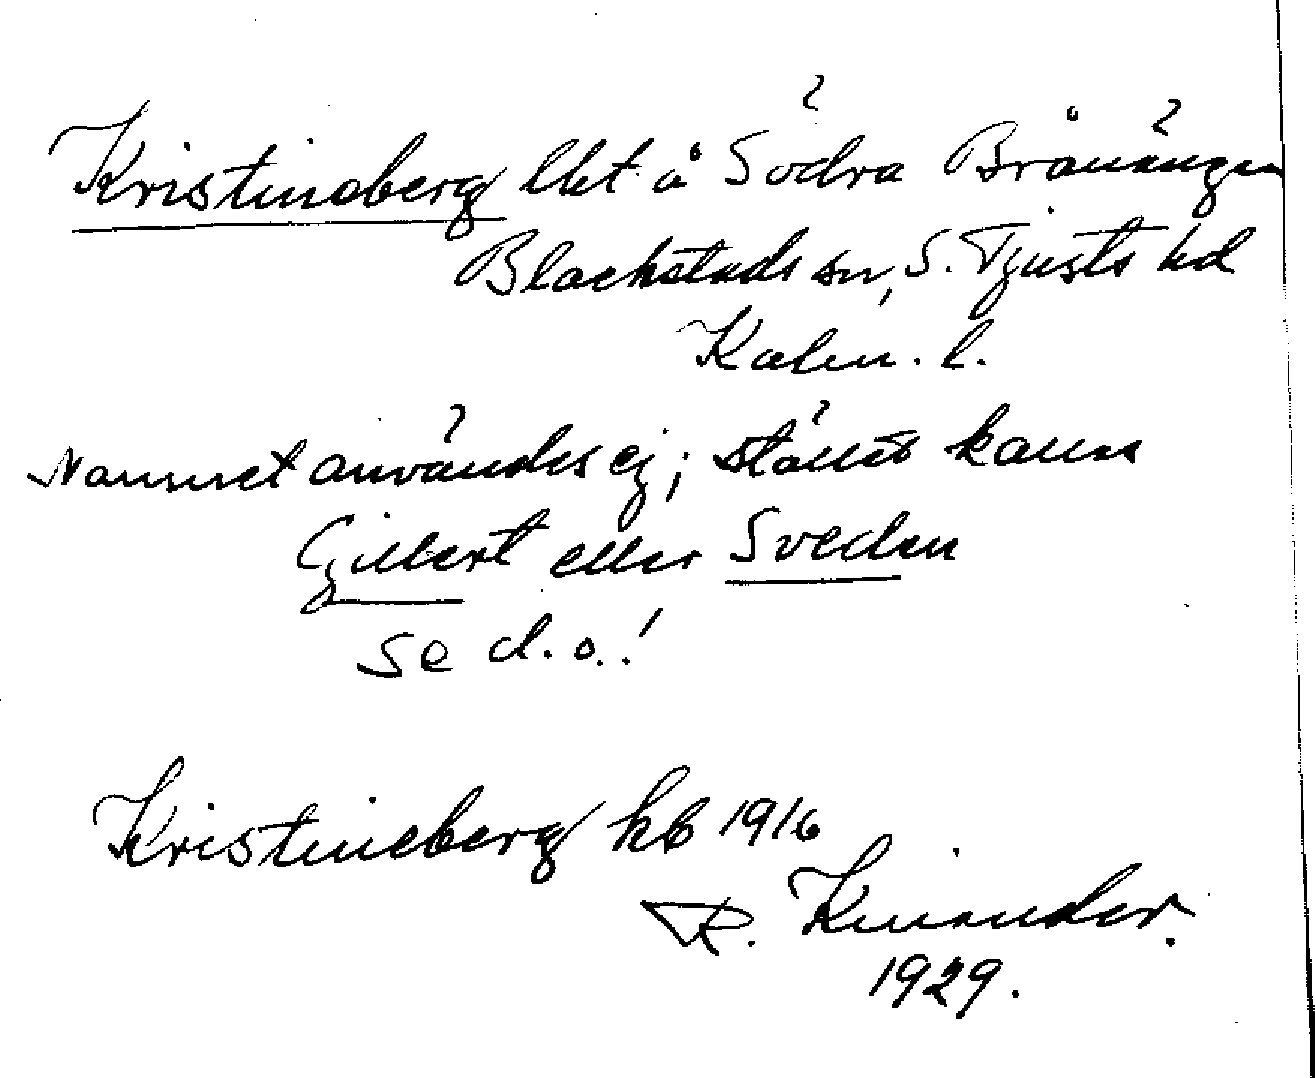 Kristineberg lht å Södra Brånängen
Blackstads sn, S. Tjusts hd
Kalm. l.
Namnet användes ej; stället kallas
Gillert eller Sveden
se d. o.!
Kristineberg kb 1916
R. Kinander.
1929.